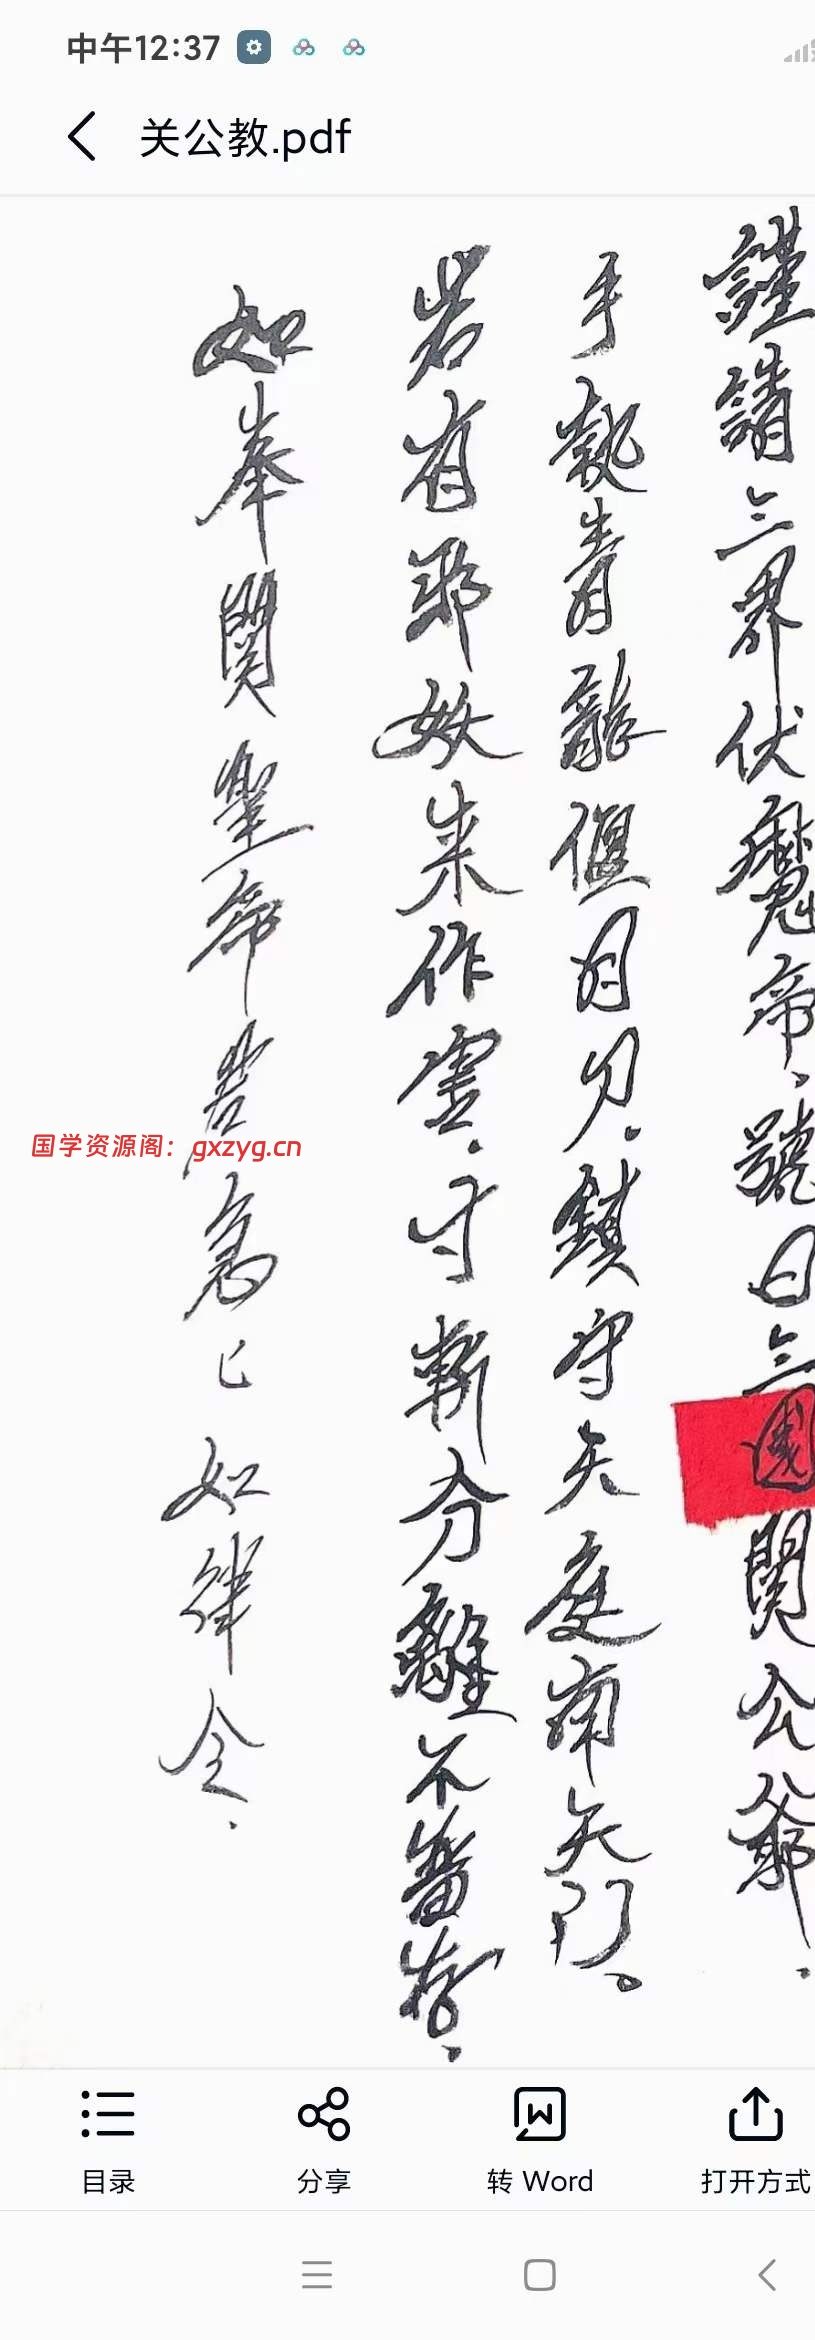 中午12:37
关公教.pdf
謹請三界伏魔帝、號曰三國関公爺.
手執青龍偃月刀.鎮守天庭南天門。
若有邪妖来作害.寸斬分離不留存.
如奉関聖帝君急急如律令.
国学资源阁：gxzyg.cn
目录
分享
转 Word
打开方式